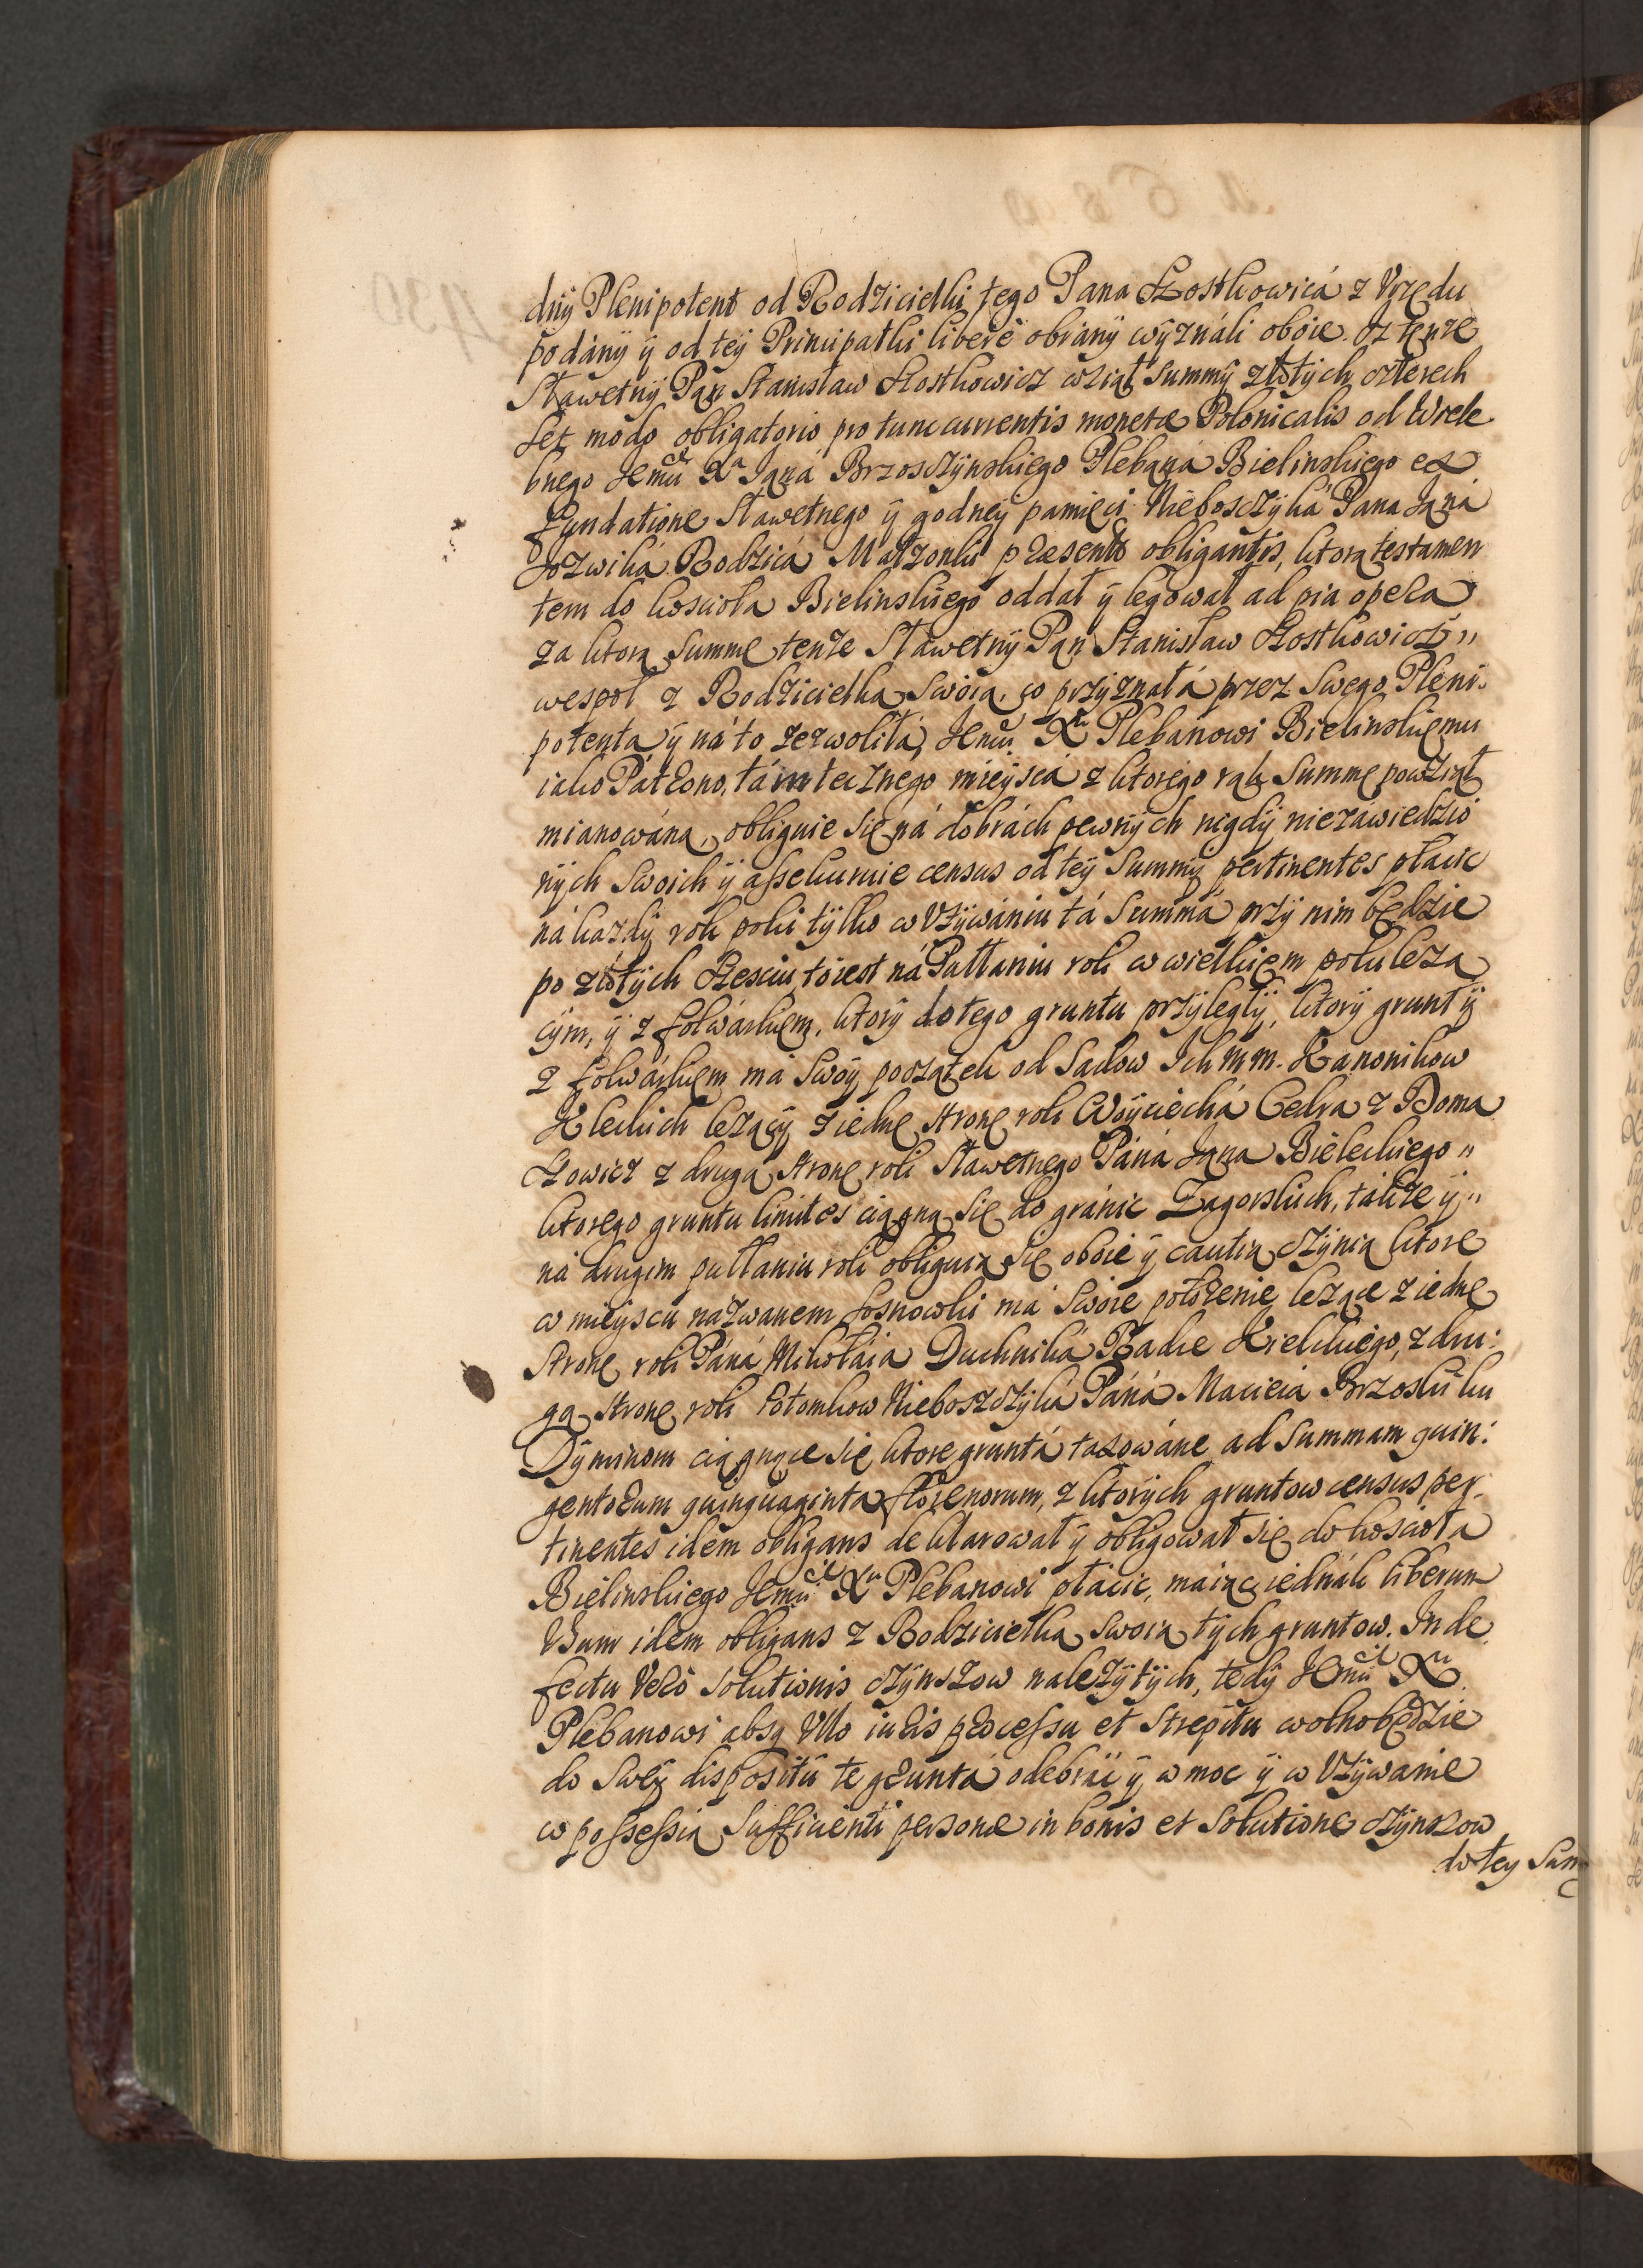 dnÿ Plenipotent od Rodzicielki tego Pana Szostkowicá z Vrzędu
podány ÿ od teÿ Principałki liberè obrany wÿználi oboie. Iz tenze
Sławetnÿ Pan Stanisław Szostkowicz wziął Summÿ złotÿch czterech
Set modo obligatorio pro tunc currentis monetæ Polonicalis od Wiele
bnego Jemci Xa Janá Brzosczÿnskiego Plebaná Bielinskiego ex
Fundatione Sławetnego ÿ godneÿ pamięci Niebosczÿká Pana Janá
Jozwiká Rodzicá Małzonki præsentis obligantis, ktorą testamen
tem do koscioła Bielinskiego oddał ÿ legował ad pia opera
za ktorą Summę tenze Sławetnÿ Pan Stanisław Szostkowicz"
wespoł z Rodzicielką Swoią, co przÿznałá przez Swego Pleni:
potentá ÿ ná to zezwoliłá, Jemci Xu Plebanowi Bielinskiemu
iako Patrono, támtecznego mieÿscá z ktorego rąk Summę powziął
mianowáną, obliguie Się ná dobrách pewnÿch nigdÿ niezáwiedzio
nÿch Swoich ÿ assekuruie census od teÿ Summÿ pertinentes płacic
ná kazdÿ rok poki tÿlko w Vzÿwániu tá Summá przÿ nim będzie
po złotÿch Szesciu, to iest ná Pułłaniu roli w wielkiem polu leza
cÿm, ÿ z folwárkiem, ktorÿ do tego gruntu przÿległÿ, ktorÿ grunt ÿ
z folwárkiem má Swoÿ początek od Sadow Ich mm. Kanonikow
Kieleckich lezącÿ z iednę stronę roli Woÿciechá Cedra z Doma
szowicz z drugą stronę roli Sławetnego Páná Jana Bieleckiego"
ktorego gruntu limites ciągną Się do gránic Zagorskich, tákze ÿ"
ná drugim pułłaniu roli obliguią Się oboie ÿ cautią czÿnią ktore
w mieÿscu názwanem Sosnowki má Swoie położenie lezące z iednę
Stronę roli Páná Mikołáia Duchniká Radce Kieleckiego, z dru:
gą stronę roli Potomkow Nieboszczÿká Páná Macieia Brzoski ku
Dÿminom ciągnące Się ktore gruntá taxowáne ad Summam quin:
gentorum quinquaginta florenorum, z ktorÿch gruntow census per
tinentes idem obligans deklarował ÿ obligował się do koscioła
Bielinskiego Jemci Xu Plebanowi płácic, maiąc iednák liberum
Vsum idem obligans z Rodzicielką Swoią tÿch gruntow. In de
fectu Verò Solutionis czÿnszow nalezÿtÿch, tedÿ Jemci Xu
Plebanowi absq Vllo iuris processu et Strepitu wolno będzie
do Sweÿ disposityi te gruntá odebráć ÿ w moc ÿ w Vzÿwanie
w possessią Sufficienti personæ in bonis et Solutione czÿnszow
do teÿ Sum